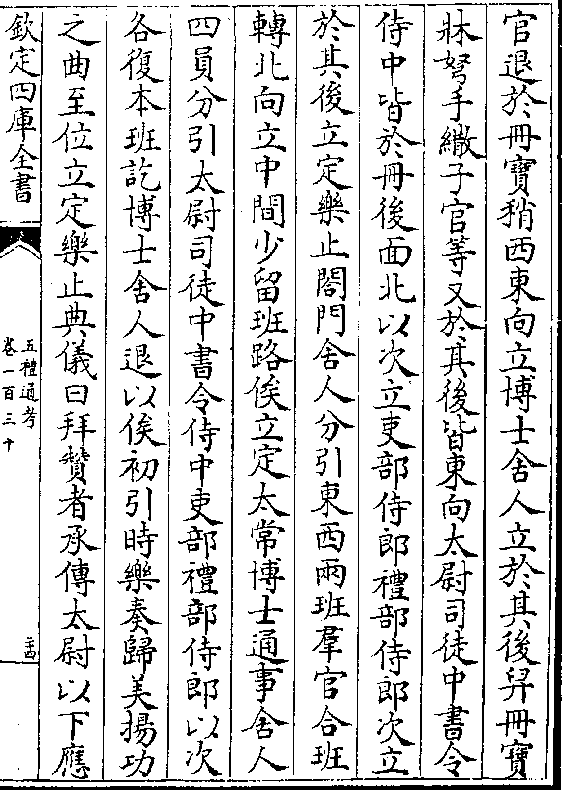 官退於冊寶稍西東向立博士舍人立於其後舁冊寶
牀弩手繖子官等又於其後皆東向太尉司徒中書令
侍中皆於冊後面北以次立吏部侍郎禮部侍郎次立
於其後立定樂止閤門舍人分引東西兩班羣官合班
轉北向立中間少留班路俟立定太常博士通事舍人
四員分引太尉司徒中書令侍中吏部禮部侍郎以次
各復本班訖博士舍人退以俟初引時樂奏歸美揚功
之曲至位立定樂止典儀曰拜贊者承傳太尉以下應
欽定四庫全書
五禮通考
卷一百三十